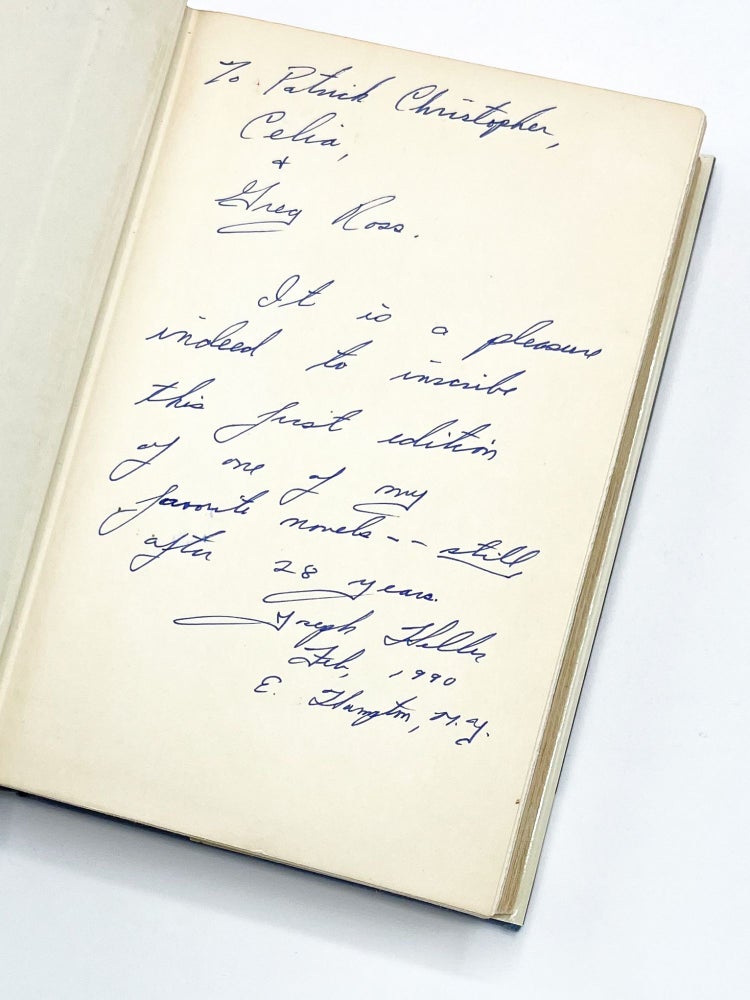 To Patrick Christopher,
Celia,
&
Greg Ross.
It is a pleasure
indeed to inscribe
this first edition
of one of my
favorite novels -- still
after 28 years.
Joseph Heller
Feb, 1990
E. Hampton, N.Y.